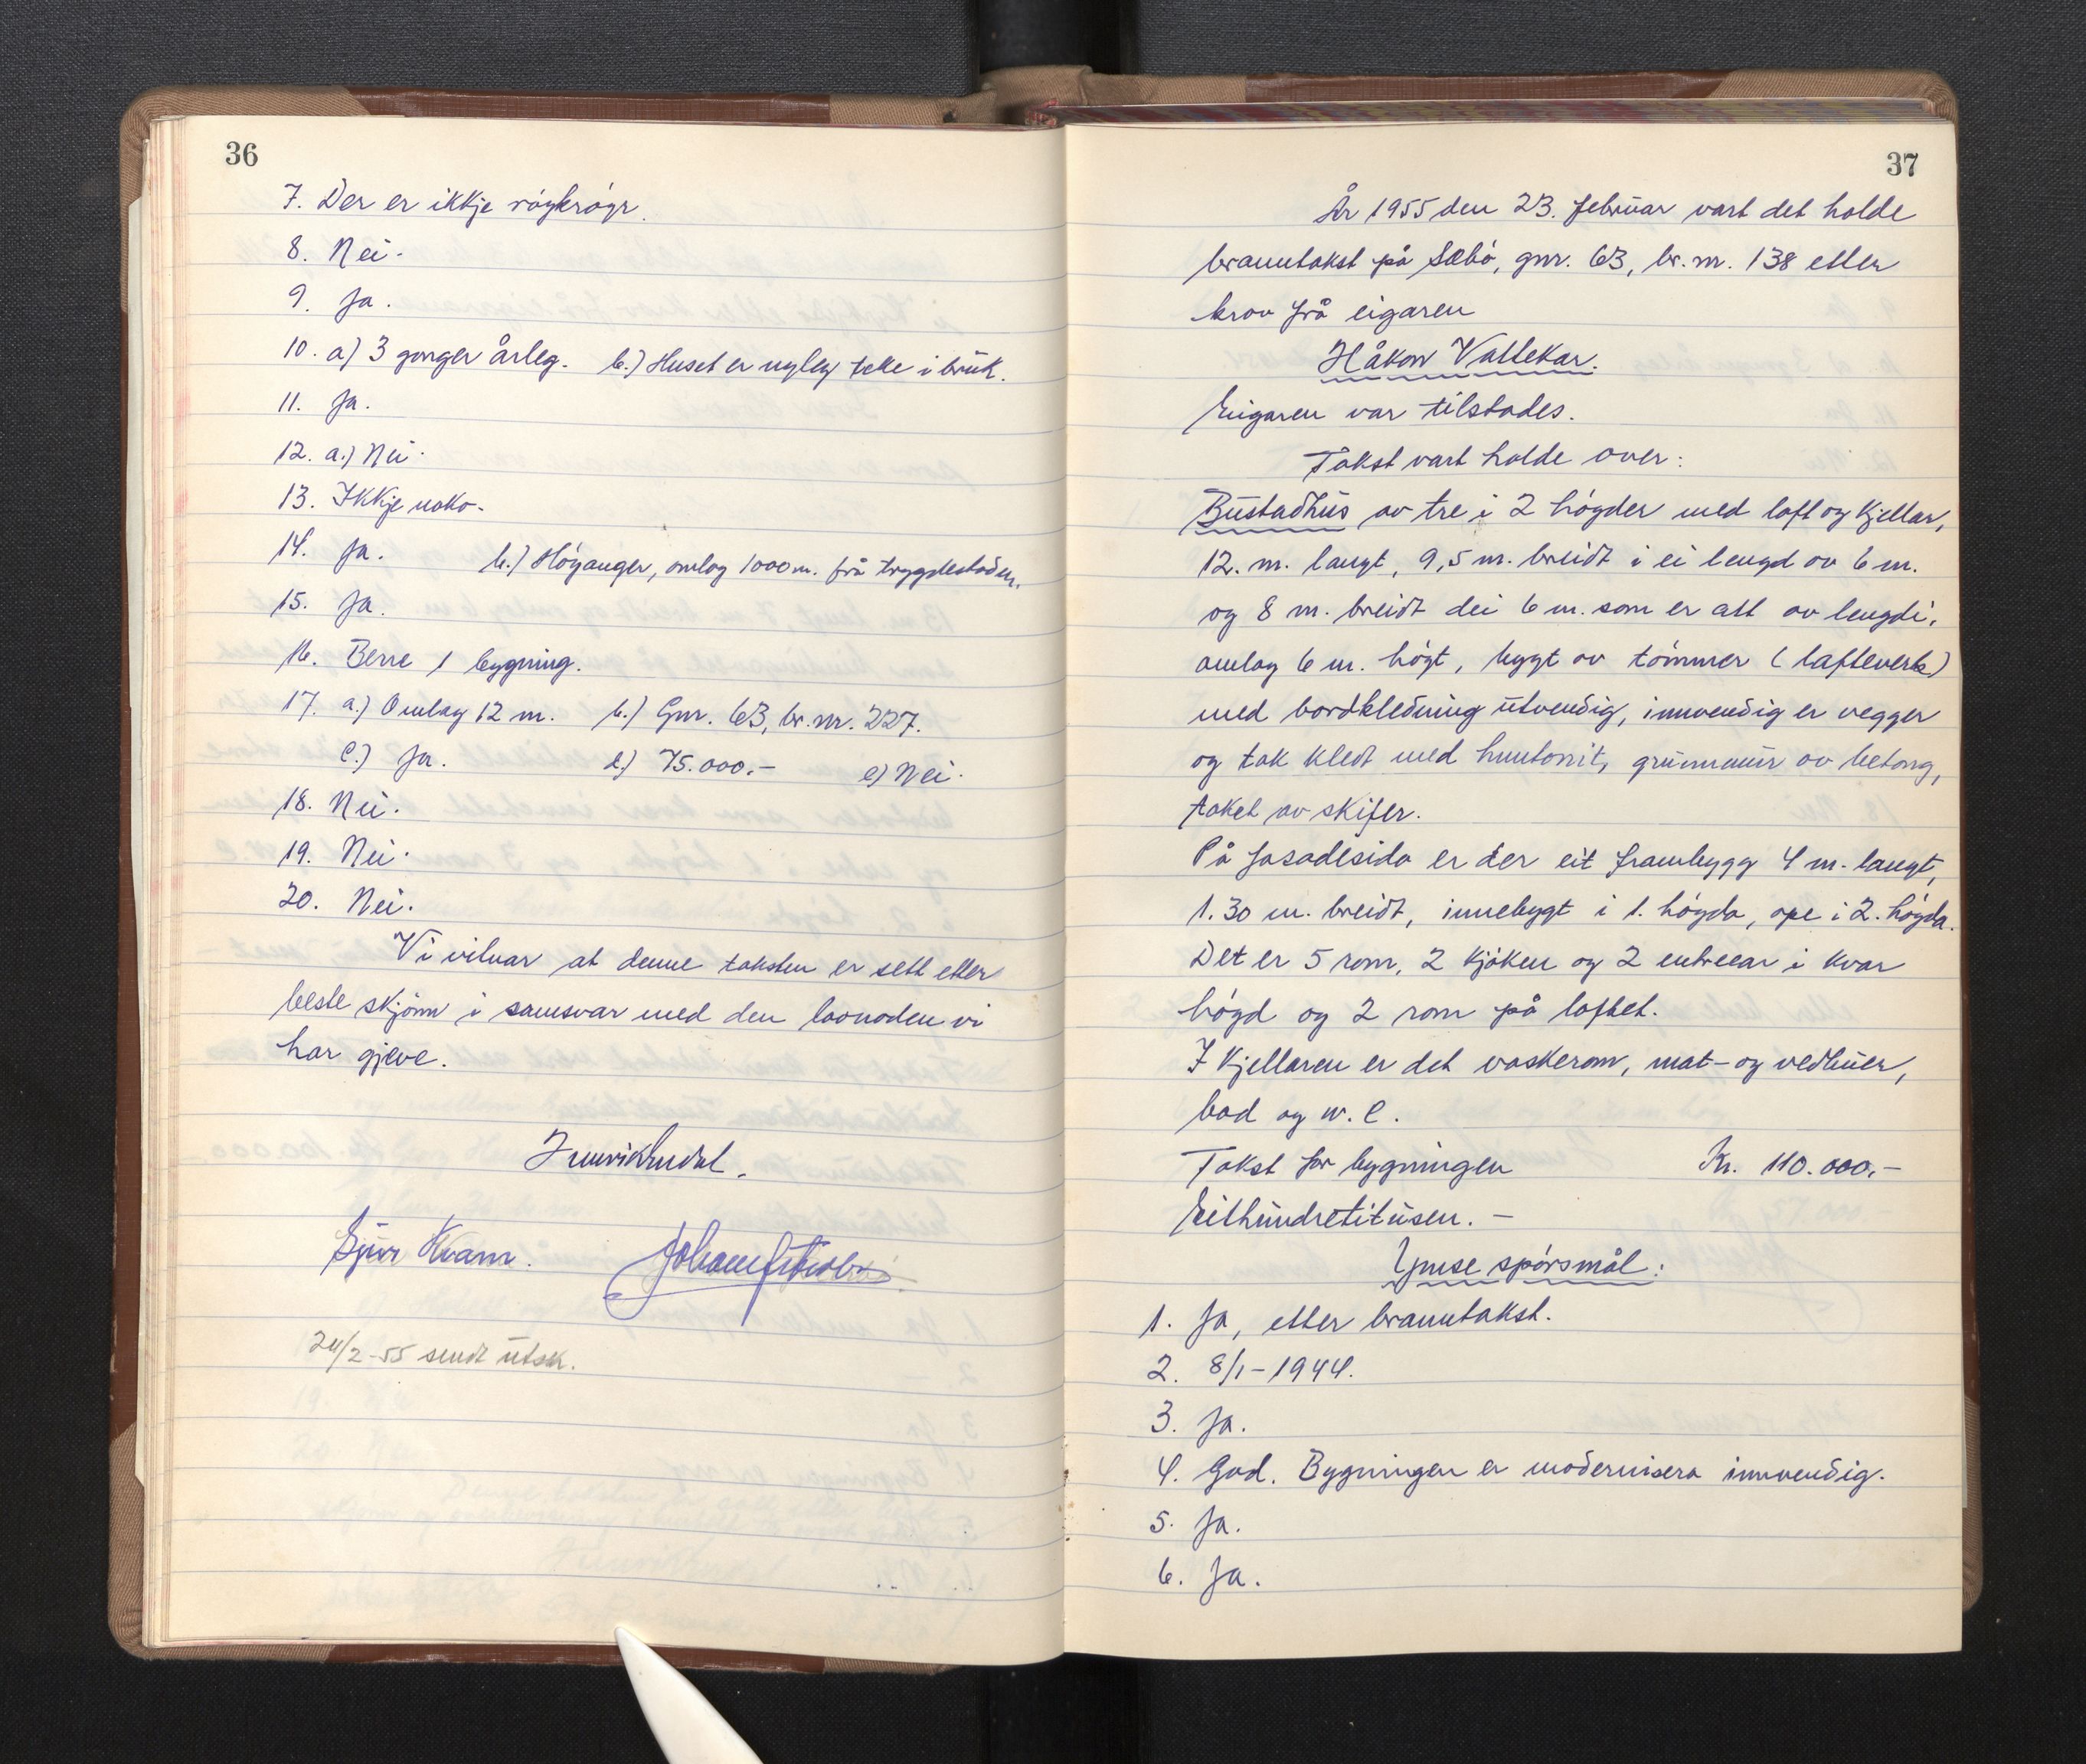 36
7. Der er ikkje röykröyr.
8. Nei.
9. Ja.
10. a) 3 gonger årleg. b.) Huset er nyleg teke i bruk.
11. Ja.
12. a.) Nei.
13. Ikkje noko.
14. Ja. b.) Höyanger, omlag 1000 m. frå trygdestaden.
15. Ja.
16. Berre 1 bygning.
17. a.) Omlag 12 m. b.) Gnr. 63, br.nr. 227.
c.) Ja. d.) 75.000.- e) Nei.
18. Nei.
19. Nei.
20. Nei.
Vi vitnar at denne taksten er sett etter
beste skjönn i samsvar med den lovnaden vi
har gjeve.
Sjur Kvam.
24/2-55 sendt utskr.
37
År 1955 den 23. februar vart det halde
branntakst på Sæbö, gnr. 63, br.nr. 138 etter
krav frå eigaren
Håkon Vallekar.
Eigaren var tilstades.
Takst vart halde over:
Bustadhus av tre i 2 högder med loft og kjellar,
12. m. langt, 9,5 m. breidt i ei lengd av 6 m.
og 8 m. breidt dei 6 m. som er att av lengdi,
omlag 6 m. högt, bygt av tömmer (lafteverk)
med bordkledning utvendig, innvendig er vegger
og tak kledt med huntonit, grunnmur av betong,
taket av skifer.
På fasadesida er der eit frambygg 4 m. langt,
1.30 m. breidt, innebygt i 1. högda, ope i 2. högda.
Det er 5 rom, 2 kjöken og 2 entreear i kvar
högd og 2 rom på loftet.
I kjellaren er det vaskerom, mat- og vedbuer,
bad og w.c.
Takst for bygningen Kr. 110.000.-
Eithundretitusen. -
Ymse spörsmål:
1. Ja, etter branntakst.
2. 8/1-1944.
3. Ja.
4. God. Bygningen er modernisera innvendig.
5. Ja.
6. Ja.